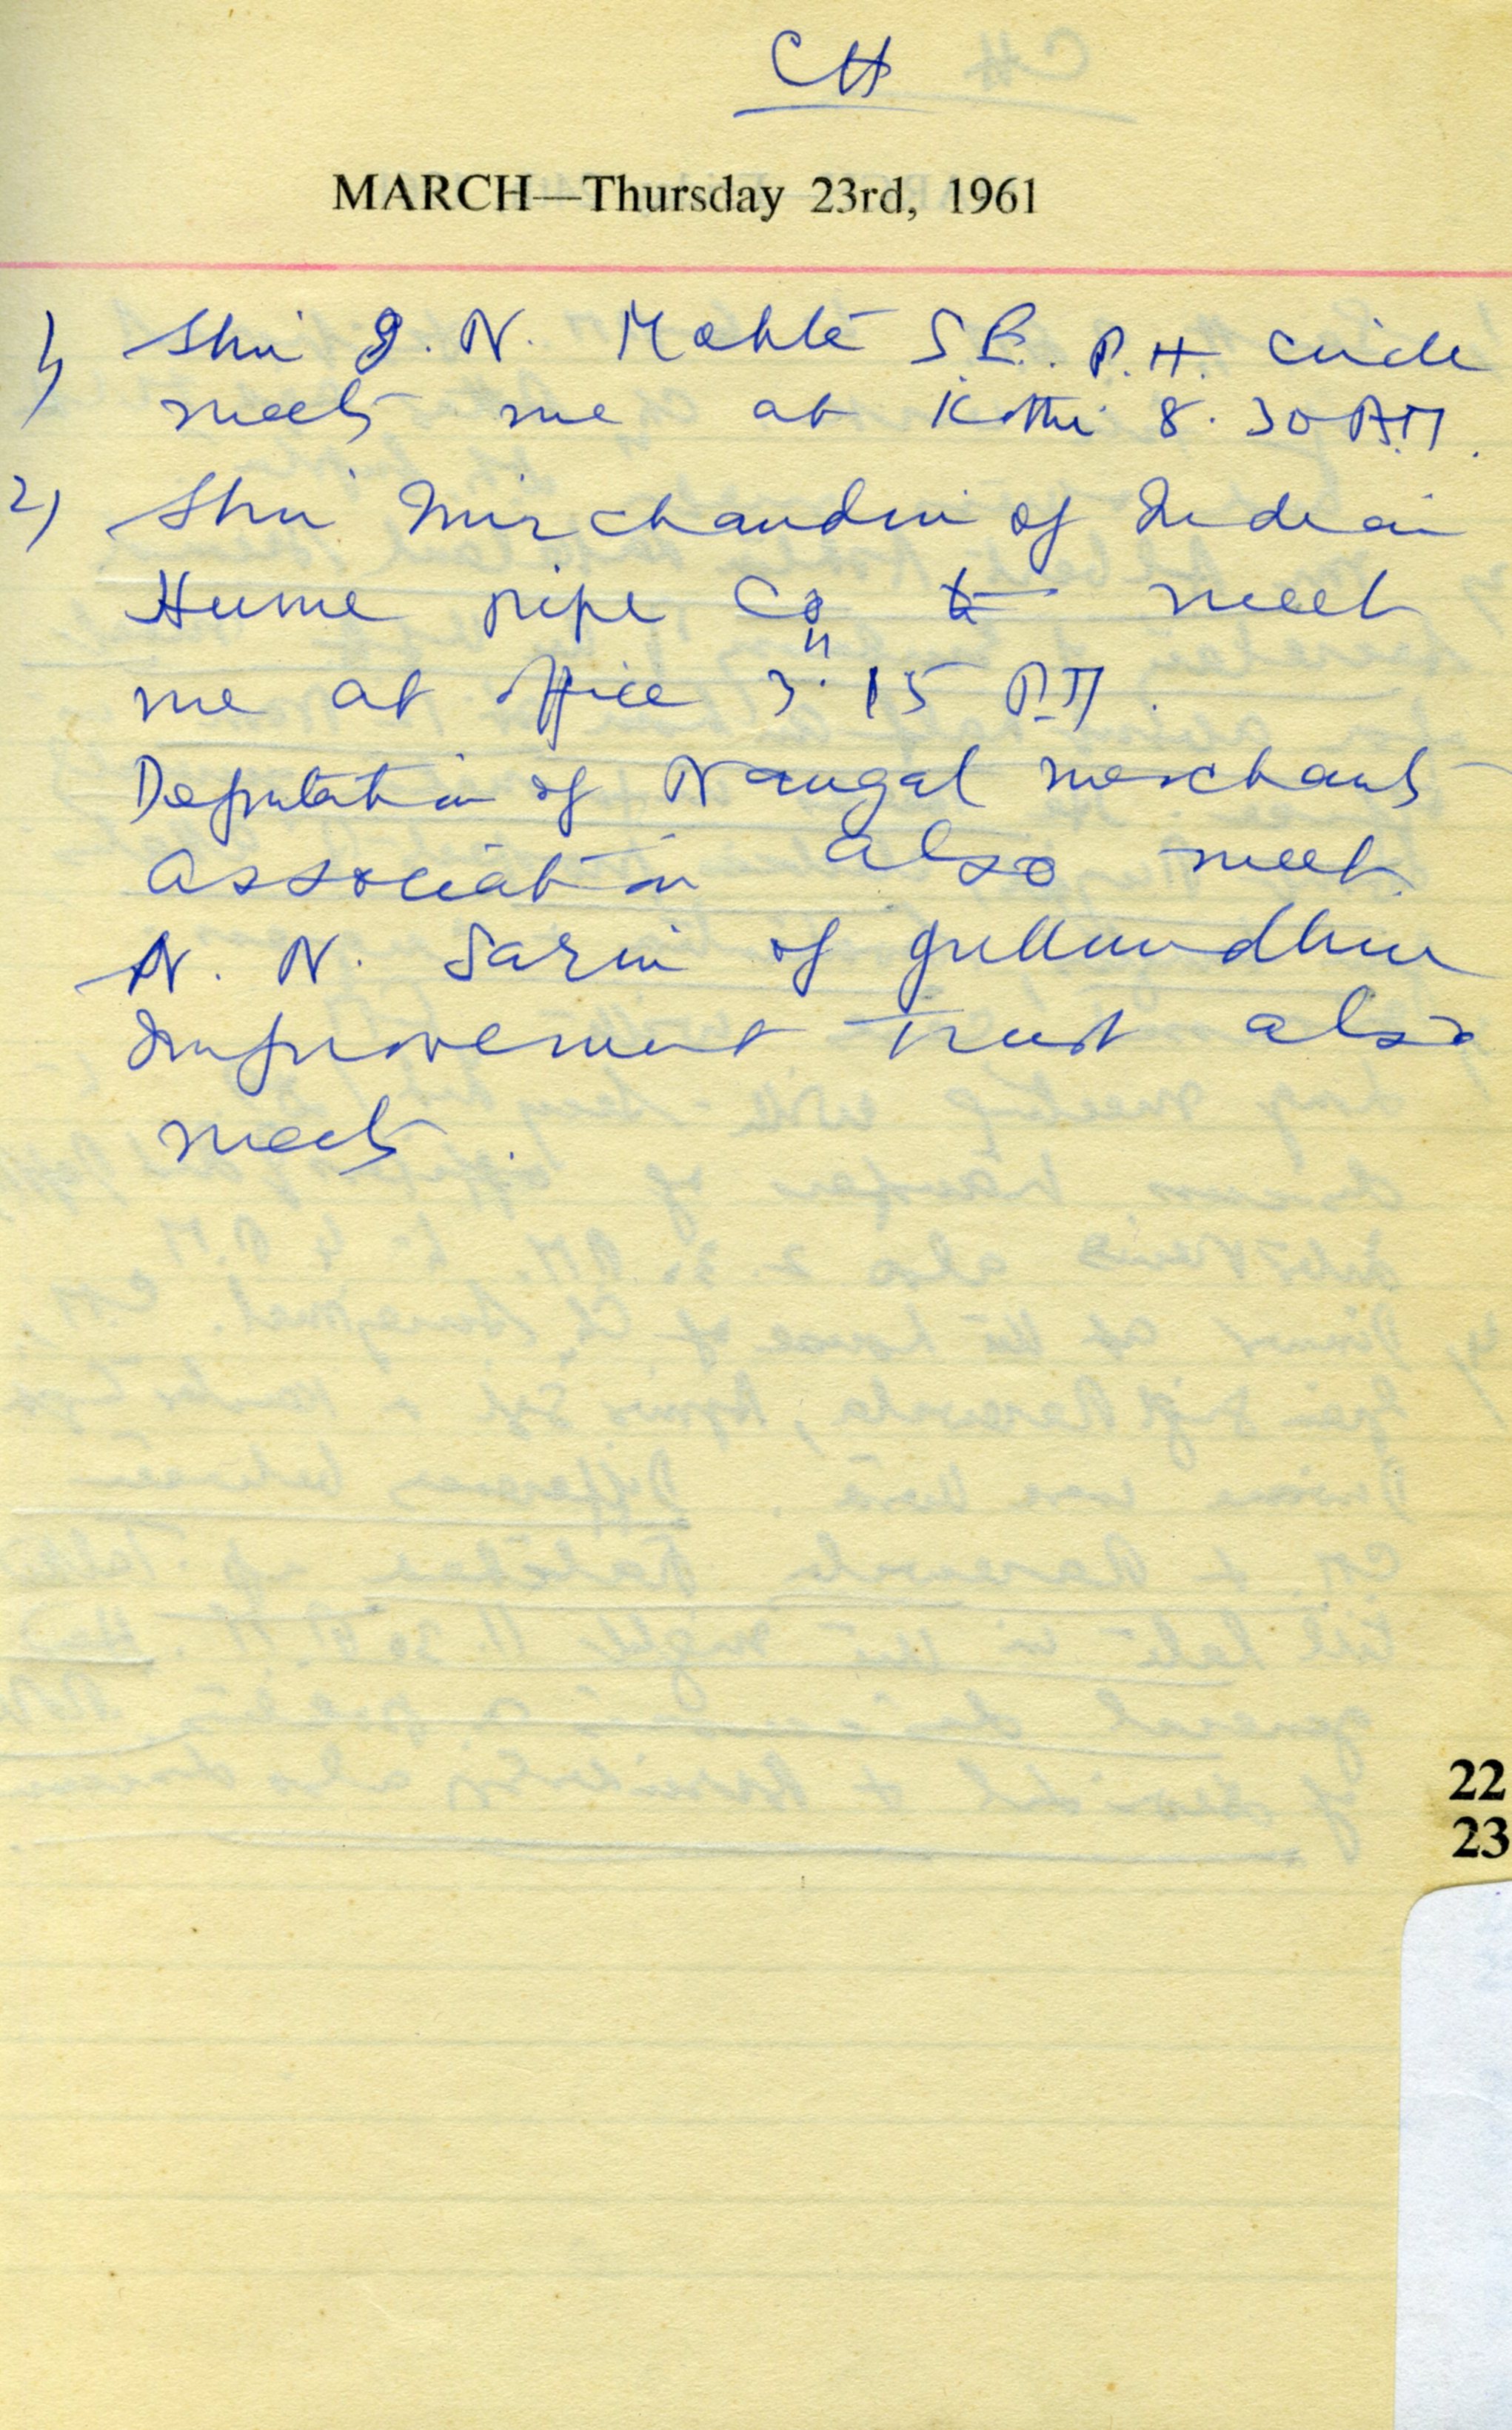 CH
MARCH—Thursday 23rd, 1961
1) Shri I. N. Mohte S.E. P.H. Circle
meets me at Kothi 8.30 A.M.
2) Shri Mirchandni of Indian
Hume pipe Co to meet
me at office 3.15 P.M.
Deputation of Nangal merchants
Association also meet.
N. N. Sarin of Jullundhur
Improvement Trust also
meets.
22
23